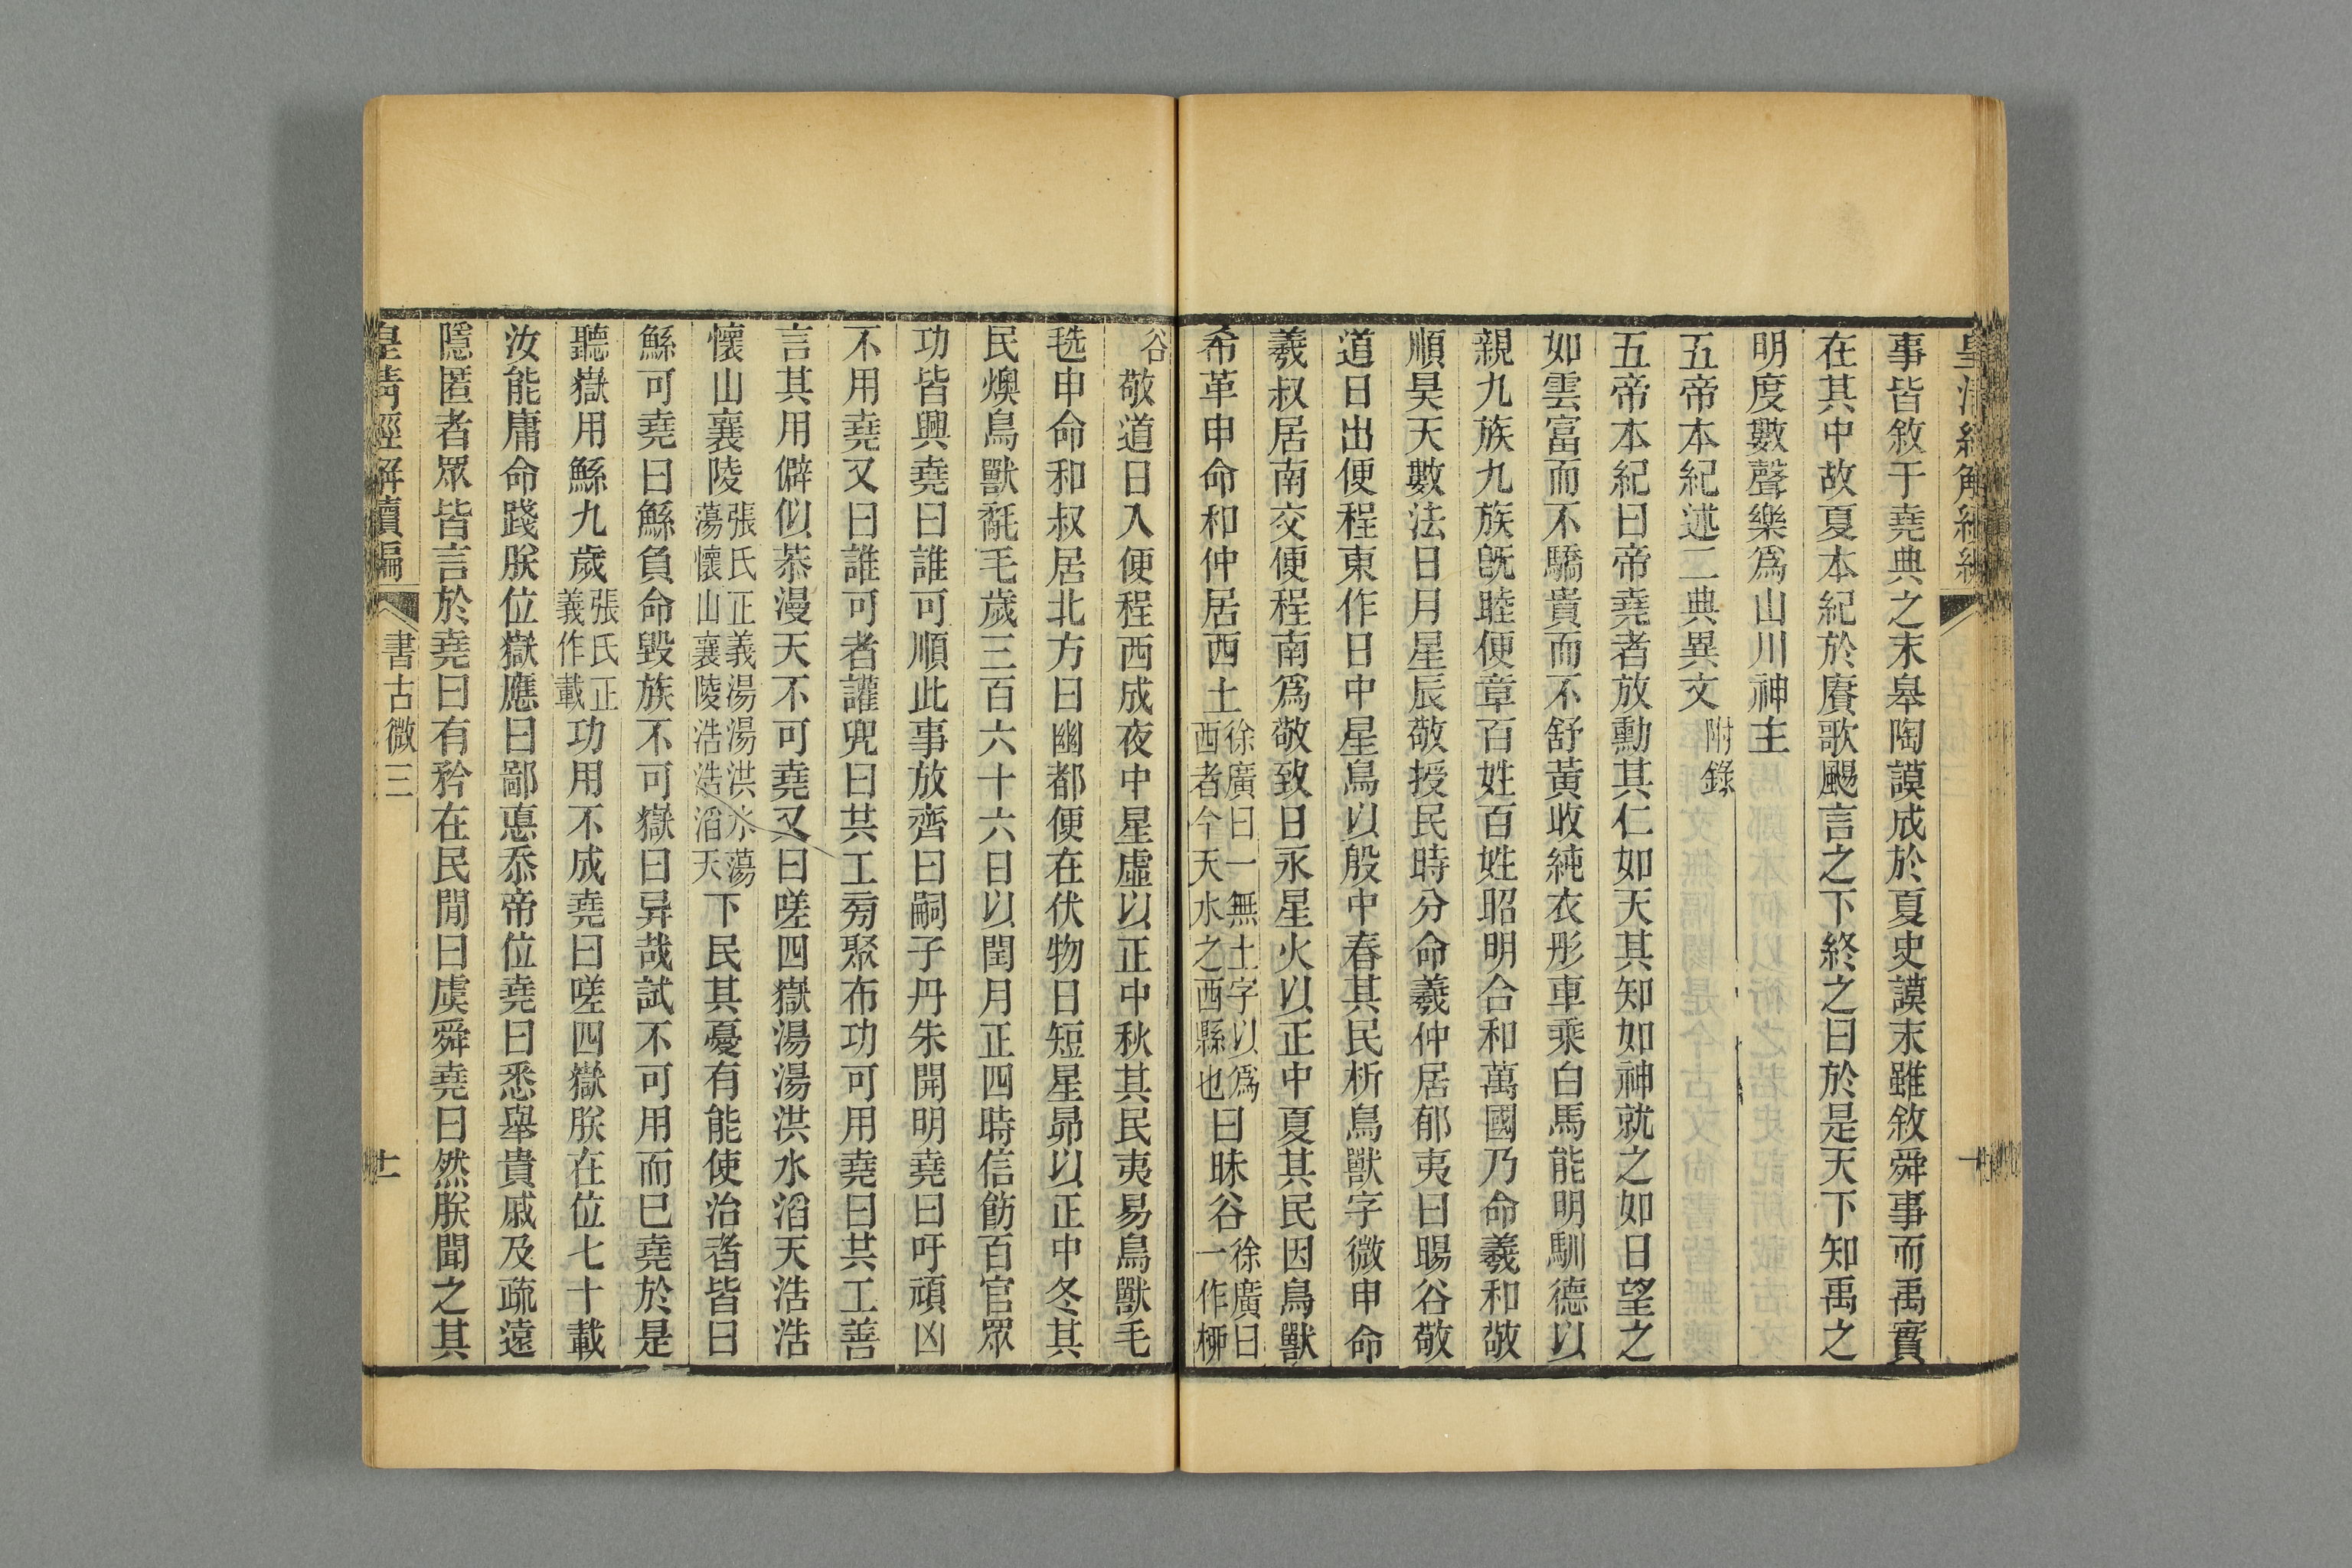 事皆敘于堯典之末皋陶謨成於夏史謨末雖敘舜事而禹實
在其中故夏本紀於賡歌颺言之下終之曰於是天下知禹之
明度數聲樂爲山川神主
五帝本紀述二典異文附錄
五帝本紀曰帝堯者放勳其仁如天其知如神就之如日望之
如雲富而不驕貴而不舒黃收純衣彤車乘白馬能明馴德以
親九族九族旣睦便章百姓百姓昭明合和萬國乃命羲和敬
順昊天數法日月星辰敬授民時分命羲仲居郁夷曰暘谷敬
道日出便程東作日中星鳥以殷中春其民析鳥獸字微申命
羲叔居南交便程南爲敬致日永星火以正中夏其民因鳥獸
希革申命和仲居西土徐廣曰一無土字以爲西者今天水之西縣也曰昧谷徐廣曰一作柳
谷敬道日入便程西成夜中星虛以正中秋其民夷易鳥獸毛
毨申命和叔居北方曰幽都便在伏物日短星昴以正中冬其
民燠鳥獸氄毛歲三百六十六日以閏月正四時信飭百官眾
功皆興堯曰誰可順此事放齊曰嗣子丹朱開明堯曰吁頑凶
不用堯又曰誰可者讙兜曰共工旁聚布功可用堯曰共工善
言其用僻似恭漫天不可堯又曰嗟四嶽湯湯洪水滔天浩浩
懷山襄陵張氏正義湯湯洪水蕩蕩懷山襄陵浩浩滔天下民其憂有能使治者皆曰
鯀可堯曰鯀負命毀族不可嶽曰异哉試不可用而巳堯於是
聽嶽用鯀九歲張氏正義作載功用不成堯曰嗟四嶽朕在位七十載
汝能庸命踐朕位嶽應曰鄙悳忝帝位堯曰悉舉貴戚及疏遠
隱匿者眾皆言於堯曰有矜在民閒曰虞舜堯曰然朕聞之其
皇清經解續編 書古微三 十一